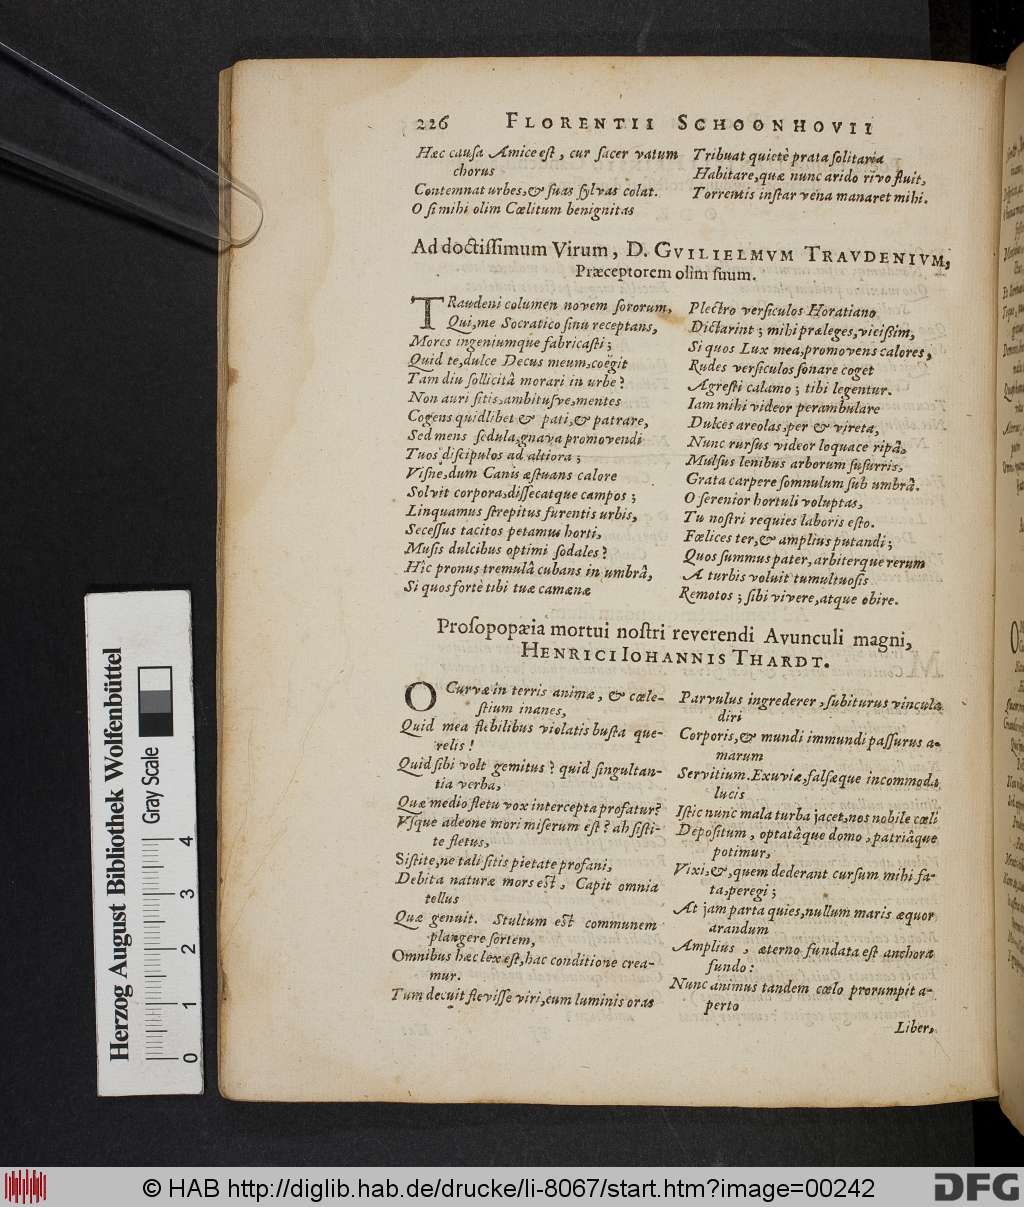 226 FLORENTII SCHOONHOVII
Hæc causa Amice est, cur sacer vatum
chorus
Contemnat urbes, & suas sylvas colat.
O si mihi olim Cœlitum benignitas
Tribuat quietè prata solitaria
Habitare, quæ nunc arido rivo fluit,
Torrentis instar vena manaret mihi.
Ad doctissimum Virum, D. GVILIELMVM TRAVDENIVM,
Præceptorem olim suum.
TRaudeni columen novem sororum,
Qui, me Socratico sinu receptans,
Mores ingeniumque fabricasti;
Quid te, dulce Decus meum, coëgit
Tam diu sollicitâ morari in urbe?
Non auri sitis, ambitusve, mentes
Cogens quidlibet & pati, & patrare,
Sed mens sedula, gnava promovendi
Tuos discipulos ad altiora;
Visne, dum Canis æstuans calore
Solvit corpora, dissecatque campos;
Linquamus strepitus furentis urbis,
Secessus tacitos petamus horti,
Musis dulcibus optimi sodales?
Hîc pronus tremulâ cubans in umbrâ,
Si quos fortè tibi tuæ camænæ
Plectro versiculos Horatiano
Dictarint; mihi præleges, vicissim,
Si quos Lux mea, promovens calores,
Rudes versiculos sonare coget
Agresti calamo; tibi legentur.
Iam mihi videor perambulare
Dulces areolas, per & vireta,
Nunc rursus videor loquace ripâ,
Mulsus lenibus arborum susurris,
Grata carpere somnulum sub umbrâ.
O serenior hortuli voluptas,
Tu nostri requies laboris esto.
Fœlices ter, & amplius putandi;
Quos summus pater, arbiterque rerum
A turbis voluit tumultuosis
Remotos; sibi vivere, atque obire.
Prosopopæia mortui nostri reverendi Avunculi magni,
HENRICI IOHANNIS THARDT.
O Curvæ in terris animæ, & cœle-
stium inanes,
Quid mea flebilibus violatis busta que-
relis!
Quid sibi volt gemitus? quid singultan-
tia verba,
Quæ medio fletu vox intercepta profatur?
Vsque adeone mori miserum est? ah sisti-
te fletus,
Sistite, ne tali sitis pietate profani,
Debita naturæ mors est, Capit omnia
tellus
Quæ genuit. Stultum est communem
plangere sortem,
Omnibus hæc lex est, hac conditione crea-
mur.
Tum decuit flevisse viri, cum luminis oras
Parvulus ingrederer, subiturus vincula
diri
Corporis, & mundi immundi passurus a-
marum
Servitium. Exuviæ, falsæque incommoda
lucis
Istic nunc mala turba jacet, nos nobile cœli
Depositum, optatâque domo, patriâque
potimur,
Vixi, &, quem dederant cursum mihi fa-
ta, peregi;
At jam parta quies, nullum maris æquor
arandum
Amplius, æterno fundata est anchora
fundo:
Nunc animus tandem cœlo prorumpit a-
perto
Liber,
Herzog August Bibliothek Wolfenbüttel
Gray Scale
0 1 2 3 4
© HAB http://diglib.hab.de/drucke/li-8067/start.htm?image=00242
DFG